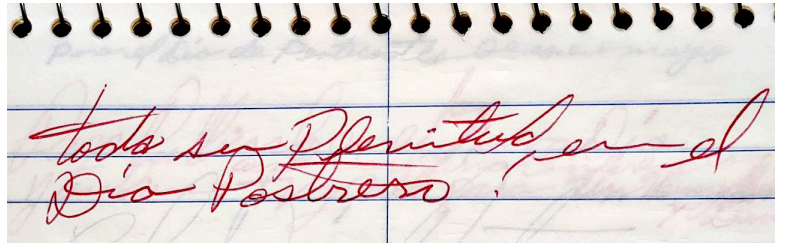 toda su Plenitud, en el
Día Postrero!